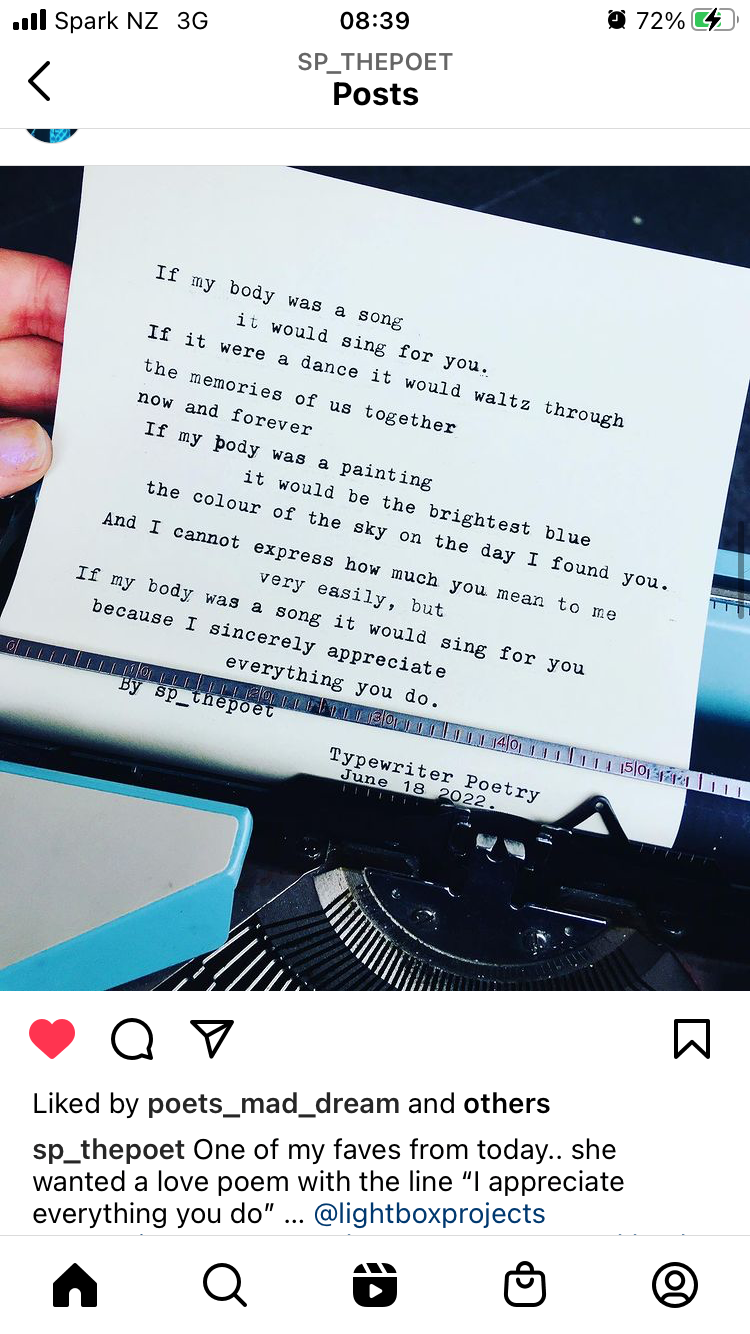 Spark NZ 3G 08:39 72%
SP_THEPOET
Posts
If my body was a song
it would sing for you.
If it were a dance it would waltz through
the memories of us together
now and forever
If my body was a painting
it would be the brightest blue
the colour of the sky on the day I found you.
And I cannot express how much you mean to me
very easily, but
If my body was a song it would sing for you
because I sincerely appreciate
everything you do.
0 10 20 30 40 50
By sp_thepoet
Typewriter Poetry
June 18 2022.
Liked by poets_mad_dream and others
sp_thepoet One of my faves from today.. she
wanted a love poem with the line “I appreciate
everything you do” ... @lightboxprojects